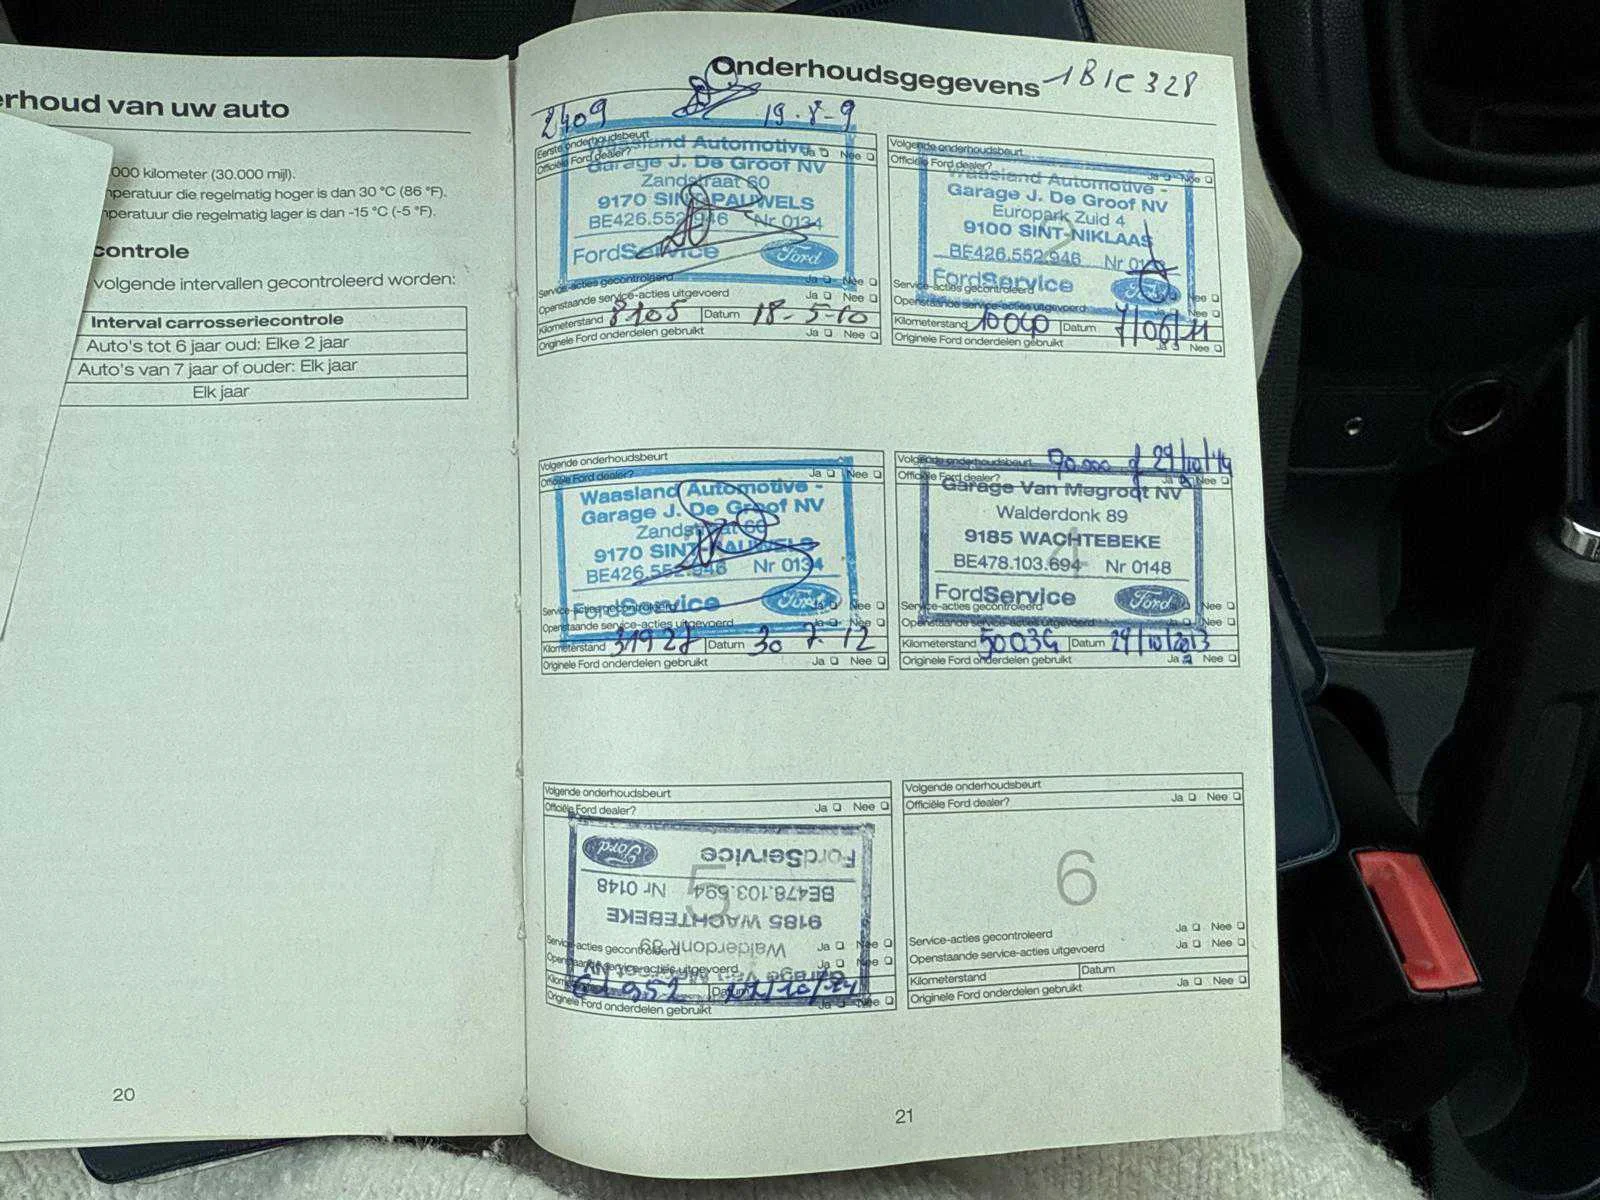 erhoud van uw auto
000 kilometer (30.000 mijl).
peratuur die regelmatig hoger is dan 30 °C (86 °F).
peratuur die regelmatig lager is dan -15 °C (-5 °F).
controle
volgende intervallen gecontroleerd worden:
Interval carrosseriecontrole
Auto's tot 6 jaar oud: Elke 2 jaar
Auto's van 7 jaar of ouder: Elk jaar
Elk jaar
20
Onderhoudsgegevens 1BIC 328
2409 19-8-9
Eerste onderhoudsbeurt
Officiële Ford dealer? Ja Nee
Waasland Automotive -
Garage J. De Groof NV
Zandstraat 60
9170 SINT-PAUWELS
BE426.552.946 Nr 0134
FordService Ford
Service-acties gecontroleerd Ja Nee
Openstaande service-acties uitgevoerd Ja Nee
Kilometerstand 8105 Datum 18-5-10
Originele Ford onderdelen gebruikt Ja Nee
Volgende onderhoudsbeurt
Officiële Ford dealer? Ja Nee
Waasland Automotive -
Garage J. De Groof NV
Europark Zuid 4
2
9100 SINT-NIKLAAS
BE426.552.946
FordService Ford
Service-acties gecontroleerd Nee
Openstaande service-acties uitgevoerd Nee
Kilometerstand Datum 7/06/11
Originele Ford onderdelen gebruikt Ja Nee
Volgende onderhoudsbeurt
Officiële Ford dealer? Ja Nee
Waasland Automotive -
Garage J. De Groof NV
Zandstraat 60
9170 SINT-PAUWELS
BE426.552.946 Nr 0134
FordService Ford
Service-acties gecontroleerd Ja Nee
Openstaande service-acties uitgevoerd Ja Nee
Kilometerstand 31927 Datum 30 7-12
Originele Ford onderdelen gebruikt Ja Nee
Volgende onderhoudsbeurt 70.000 29/10/14
Officiële Ford dealer? Ja Nee
Garage Van Megroot NV
Walderdonk 89
4
9185 WACHTEBEKE
BE478.103.694 Nr 0148
FordService Ford
Service-acties gecontroleerd Ja Nee
Openstaande service-acties uitgevoerd Ja Nee
Kilometerstand 50034 Datum 29/10/2013
Originele Ford onderdelen gebruikt Ja Nee
Volgende onderhoudsbeurt
Officiële Ford dealer? Ja Nee
FordService Ford
5
BE478.103.694 Nr 0148
9185 WACHTEBEKE
Walderdonk 89
Garage Van Megroot NV
Service-acties gecontroleerd Ja Nee
Openstaande service-acties uitgevoerd Ja Nee
Datum
Originele Ford onderdelen gebruikt Ja Nee
Volgende onderhoudsbeurt
Officiële Ford dealer? Ja Nee
6
Service-acties gecontroleerd Ja Nee
Openstaande service-acties uitgevoerd Ja Nee
Kilometerstand Datum
Originele Ford onderdelen gebruikt Ja Nee
21